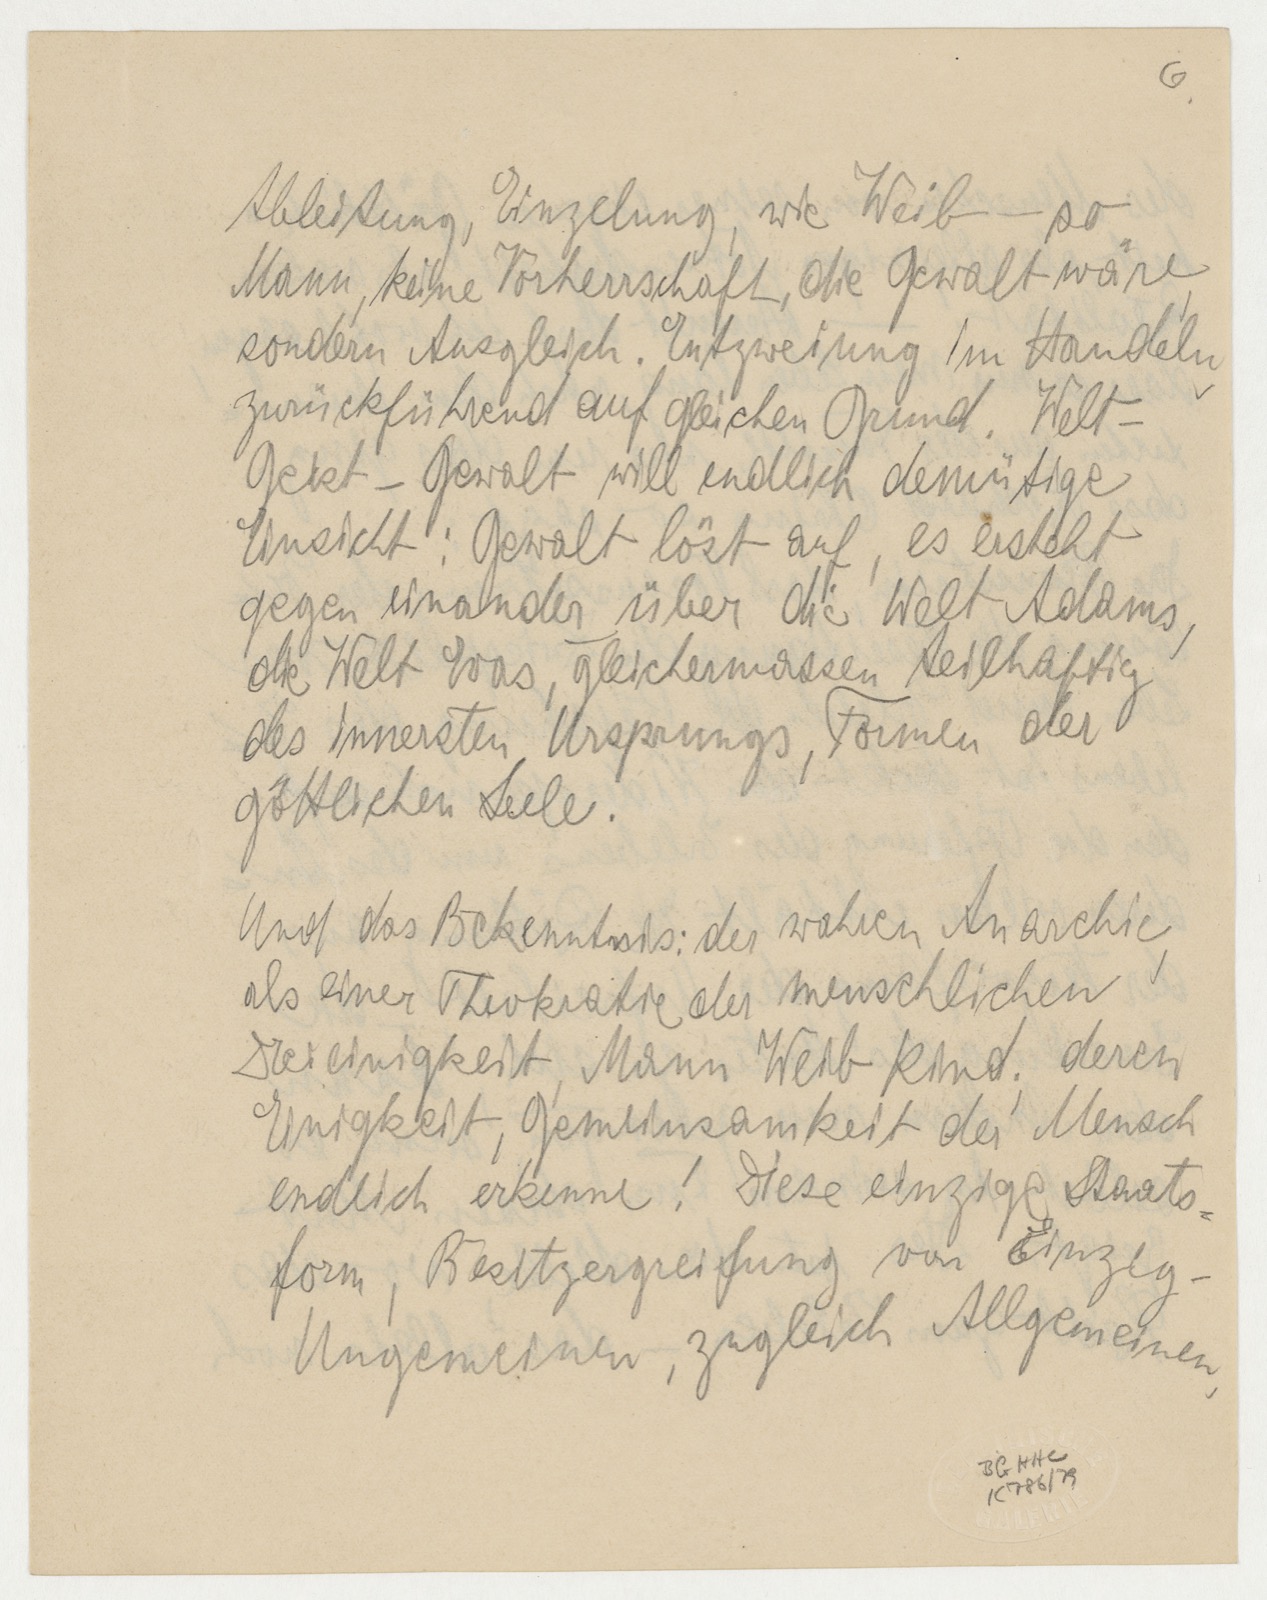 6.
Ableitung, Einzelung, wie Weib — so
Mann, keine Vorherrschaft, die Gewalt wäre,
sondern Ausgleich. Entzweiung im Handeln,
zurückführend auf gleichen Grund. Welt-
Geist - Gewalt will endlich demütige
Einsicht: Gewalt löst auf, es ersteht
gegen einander über die Welt Adams,
die Welt Evas, gleichermassen teilhaftig
des innersten Ursprungs, Formen der
göttlichen Seele.
Und das Bekenntnis: der wahren Anarchie,
als einer Theokratie der menschlichen
Dreieinigkeit, Mann Weib Kind, deren
Einigkeit, Gemeinsamkeit der Mensch
endlich erkenne! Diese einzige Staats=
form, Besitzergreifung von Einzig-
Ungemeinen, zugleich Allgemeinen,
BG HHC
K 786/79
GALERIE